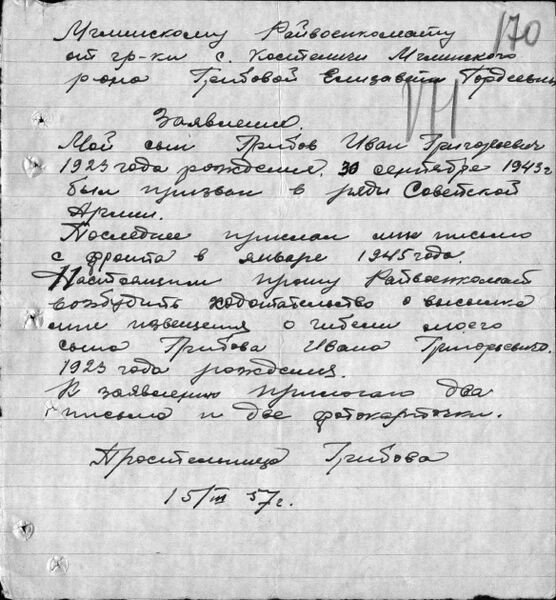 170
Мглинскому Райвоенкомату
от гр-ки с. Костеничи Мглинского
р она Грибовой Елизаветы Гордеевны
171
Заявление.
Мой сын Грибов Иван Григорьевич
1923 года рождения. 30 сентября 1943 г
был призван в ряды Советской
Армии.
Последнее прислал мне письмо
с фронта в январе 1945 года.
Настоящим прошу Райвоенкомат
возбудить ходотательство о высылке
мне извещения о гибели моего
сына Грибова Ивана Григорьевича.
1923 года рождения.
К заявлению прилогаю два
письма и две фотокарточки.
Просительница Грибова
15/III 57 г.